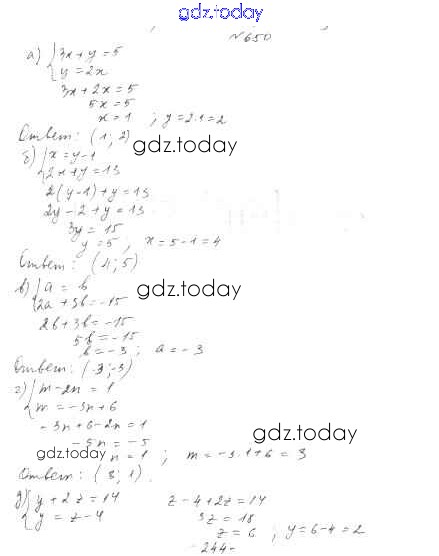 gdz.today
№650
а) { 3x + y = 5
y = 2x
3x + 2x = 5
5x = 5
x = 1 ; y = 2·1 = 2
Ответ: (1; 2)
gdz.today
б) { x = y - 1
2x + y = 13
2(y - 1) + y = 13
2y - 2 + y = 13
3y = 15
y = 5, x = 5 - 1 = 4
Ответ: (4; 5)
в) { a = b
2a + 3b = -15
gdz.today
2b + 3b = -15
5b = -15
b = -3 ; a = -3
Ответ: (-3; -3)
г) { m - 2n = 1
m = -3n + 6
-3n + 6 - 2n = 1
gdz.today
-5n = -5
gdz.today
n = 1 ; m = -3·1 + 6 = 3
Ответ: (3; 1).
д) { y + 2z = 14 z - 4 + 2z = 14
y = z - 4 3z = 18
z = 6 ; y = 6 - 4 = 2
- 244 -